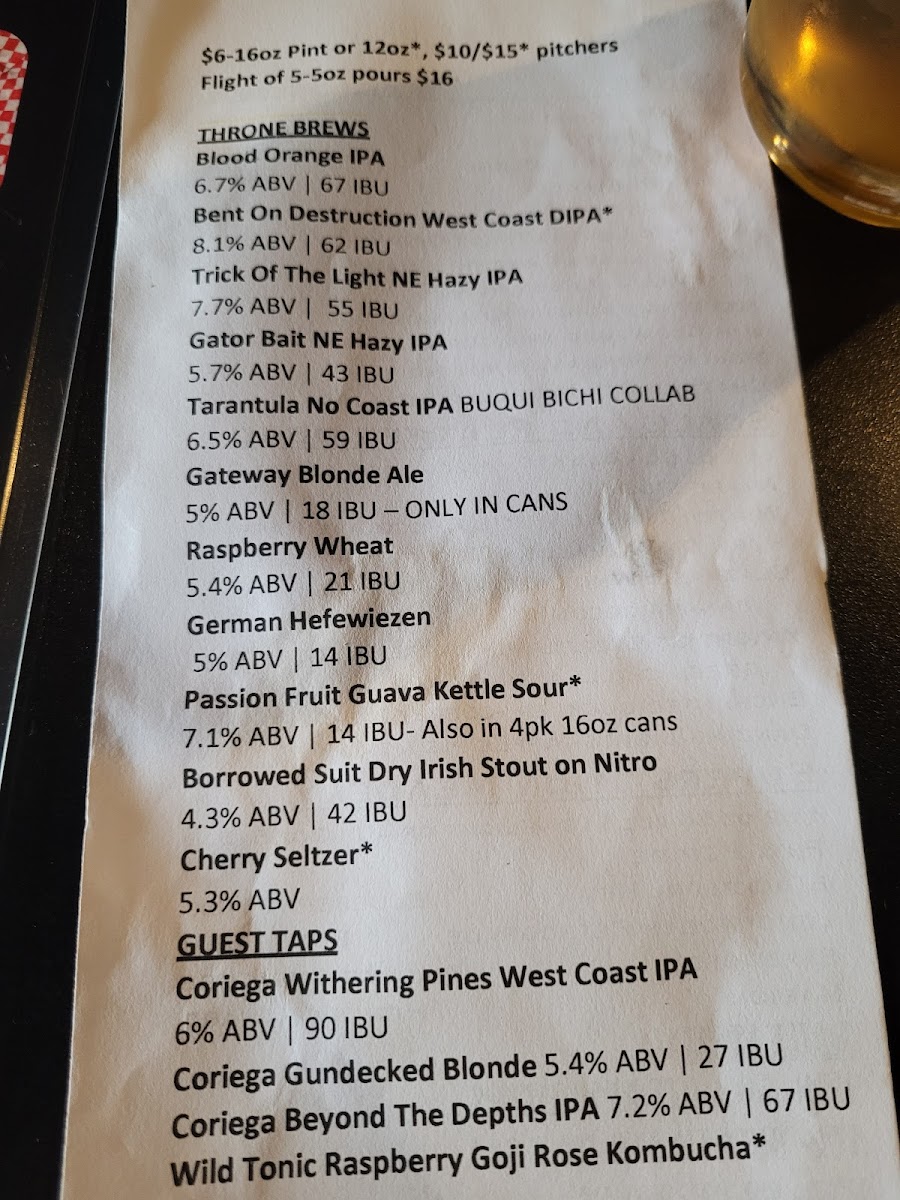 $6-16oz Pint or 12oz*, $10/$15* pitchers
Flight of 5-5oz pours $16
THRONE BREWS
Blood Orange IPA
6.7% ABV | 67 IBU
Bent On Destruction West Coast DIPA*
8.1% ABV | 62 IBU
Trick Of The Light NE Hazy IPA
7.7% ABV | 55 IBU
Gator Bait NE Hazy IPA
5.7% ABV | 43 IBU
Tarantula No Coast IPA BUQUI BICHI COLLAB
6.5% ABV | 59 IBU
Gateway Blonde Ale
5% ABV | 18 IBU – ONLY IN CANS
Raspberry Wheat
5.4% ABV | 21 IBU
German Hefewiezen
5% ABV | 14 IBU
Passion Fruit Guava Kettle Sour*
7.1% ABV | 14 IBU- Also in 4pk 16oz cans
Borrowed Suit Dry Irish Stout on Nitro
4.3% ABV | 42 IBU
Cherry Seltzer*
5.3% ABV
GUEST TAPS
Coriega Withering Pines West Coast IPA
6% ABV | 90 IBU
Coriega Gundecked Blonde 5.4% ABV | 27 IBU
Coriega Beyond The Depths IPA 7.2% ABV | 67 IBU
Wild Tonic Raspberry Goji Rose Kombucha*